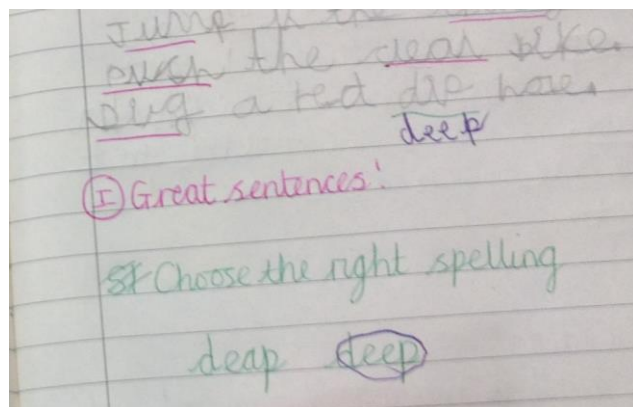 Jump in the
push the clean bike.
Dug a red die hole.
deep
I Great sentences!
St Choose the right spelling
deap deep